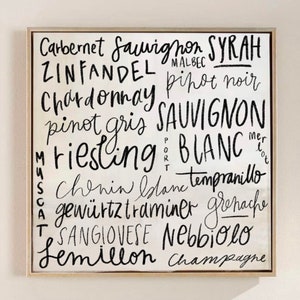 Carbernet Sauvignon SYRAH
MALBEC
ZINFANDEL
pinot noir
Chardonnay
SAUVIGNON
BLANC
pinot gris
merlot
PORT
riesling
MUSCAT
tempranillo
chenin blanc
gewürtztraminer
grenache
SANGIOVESE
Nebbiolo
Semillon
champagne